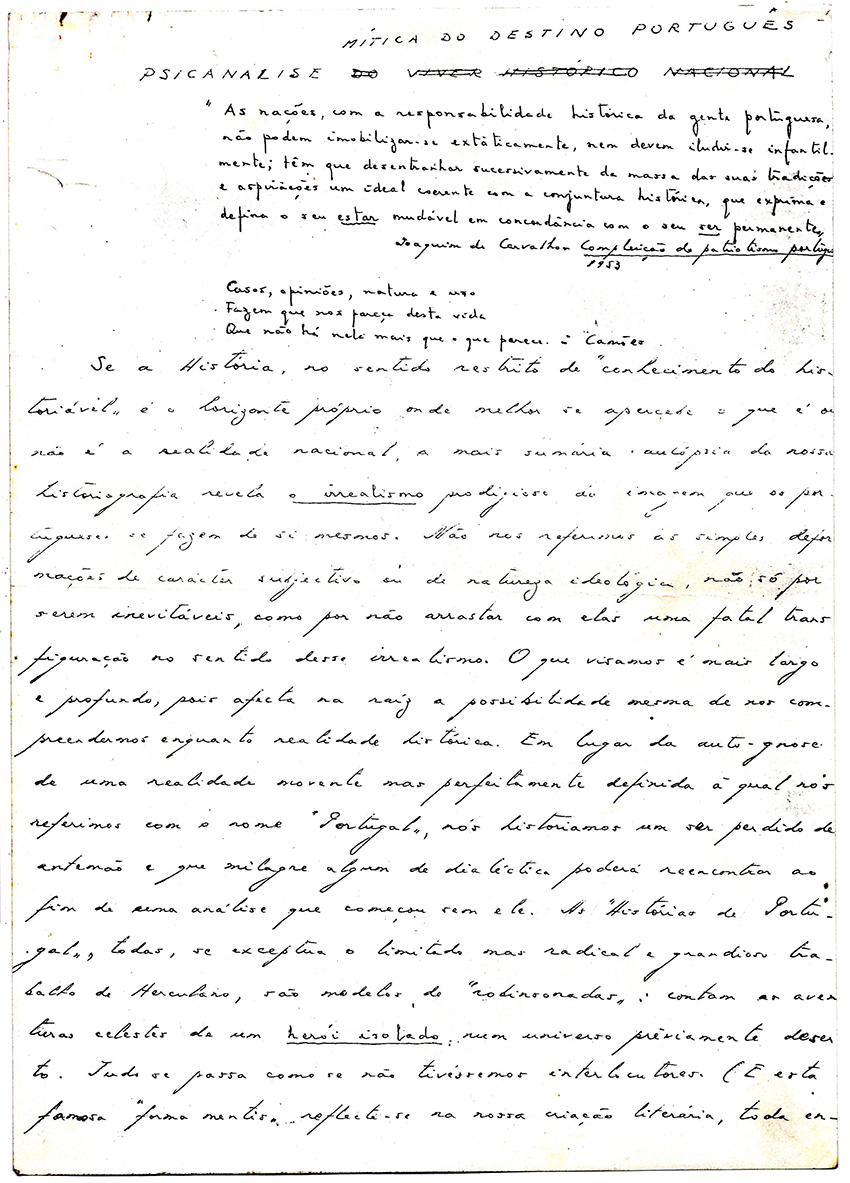 MÍTICA DO DESTINO PORTUGUÊS
PSICANALISE DO VIVER HISTÓRICO NACIONAL
"As nações, com a responsabilidade histórica da gente portuguesa,
não podem imobilizar-se extàticamente, nem devem iludir-se infantil-
mente; têm que desentranhar sucessivamente da massa das suas tradições
e aspirações um ideal coerente com a conjuntura histórica, que exprima e
defina o seu estar mudável em concordância com o seu ser permanente"
Joaquim de Carvalho Compleição do patriotismo portugu
1953
Casos, opiniões, natura e uso
Fazem que nos pareça desta vida
Que não há nela mais que o que parece. - Camões
Se a História, no sentido restrito de "conhecimento do his-
toriável" é o horizonte próprio onde melhor se apercebe o que é ou
não é a realidade nacional, a mais sumária autópsia da nossa
historiografia revela o irrealismo prodigioso da imagem que os por-
tugueses se fazem de si mesmos. Não nos referimos às simples defor
mações de carácter subjectivo ou de natureza ideológica, não só por
serem inevitáveis, como por não arrastar com elas uma fatal trans
figuração no sentido desse irrealismo. O que visamos é mais largo
e profundo, pois afecta na raíz a possibilidade mesma de nos com-
preendermos enquanto realidade histórica. Em lugar da auto-gnose
de uma realidade movente mas perfeitamente definida à qual nós
referimos com o nome "Portugal", nós historiamos um ser perdido de
antemão e que milagre algum de dialéctica poderá reencontrar ao
fim de uma análise que começou sem ele. As "Histórias de Portu-
gal", todas, se exceptua o limitado mas radical e grandioso tra-
balho de Herculano, são modelos de "robinsonadas": contam as aven
turas celestes de um herói isolado num universo prèviamente deser
to. Tudo se passa como se não tivéssemos interlocutores. (E esta
famosa "forma mentis" reflecte-se na nossa criação literária, toda en-